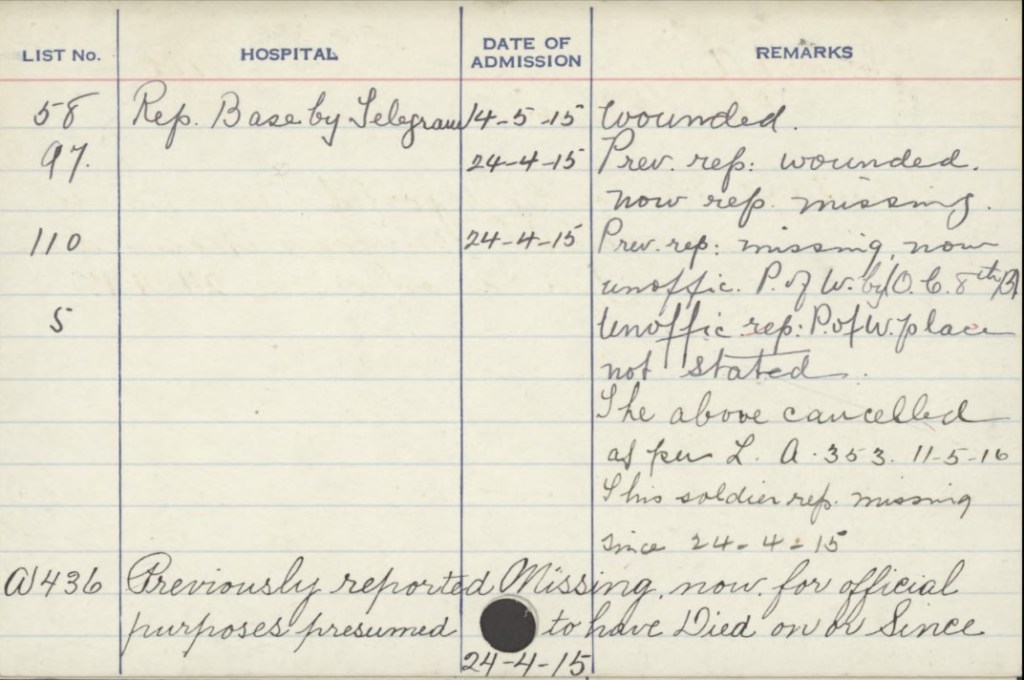 LIST No. HOSPITAL DATE OF ADMISSION REMARKS
58 Rep. Base by Telegram 14-5-15 Wounded.
97. 24-4-15 Prev. rep: wounded.
now rep. missing.
110 24-4-15 Prev. rep: missing, now
unoffic. P. of W. by O. C. 8th Bn
5 Unoffic rep: P. of W. place
not stated.
The above cancelled
as per L. A. 353. 11-5-16
This soldier rep. missing
since 24-4-15
A 436 Previously reported Missing, now for official
purposes presumed to have Died on or Since
24-4-15.